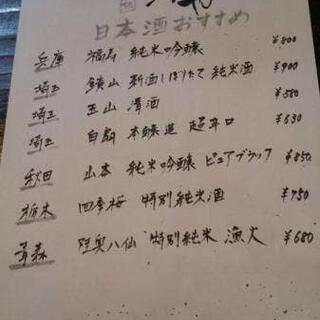 日本酒おすすめ
兵庫 福寿 純米吟醸 ¥800
埼玉 鏡山 新酒しぼりたて 純米酒 ¥900
埼玉 玉山 清酒 ¥580
埼玉 白扇 本醸造 超辛口 ¥630
秋田 山本 純米吟醸 ピュアブラック ¥850
栃木 四季桜 特別純米酒 ¥750
青森 陸奥八仙 特別純米 漁火 ¥680